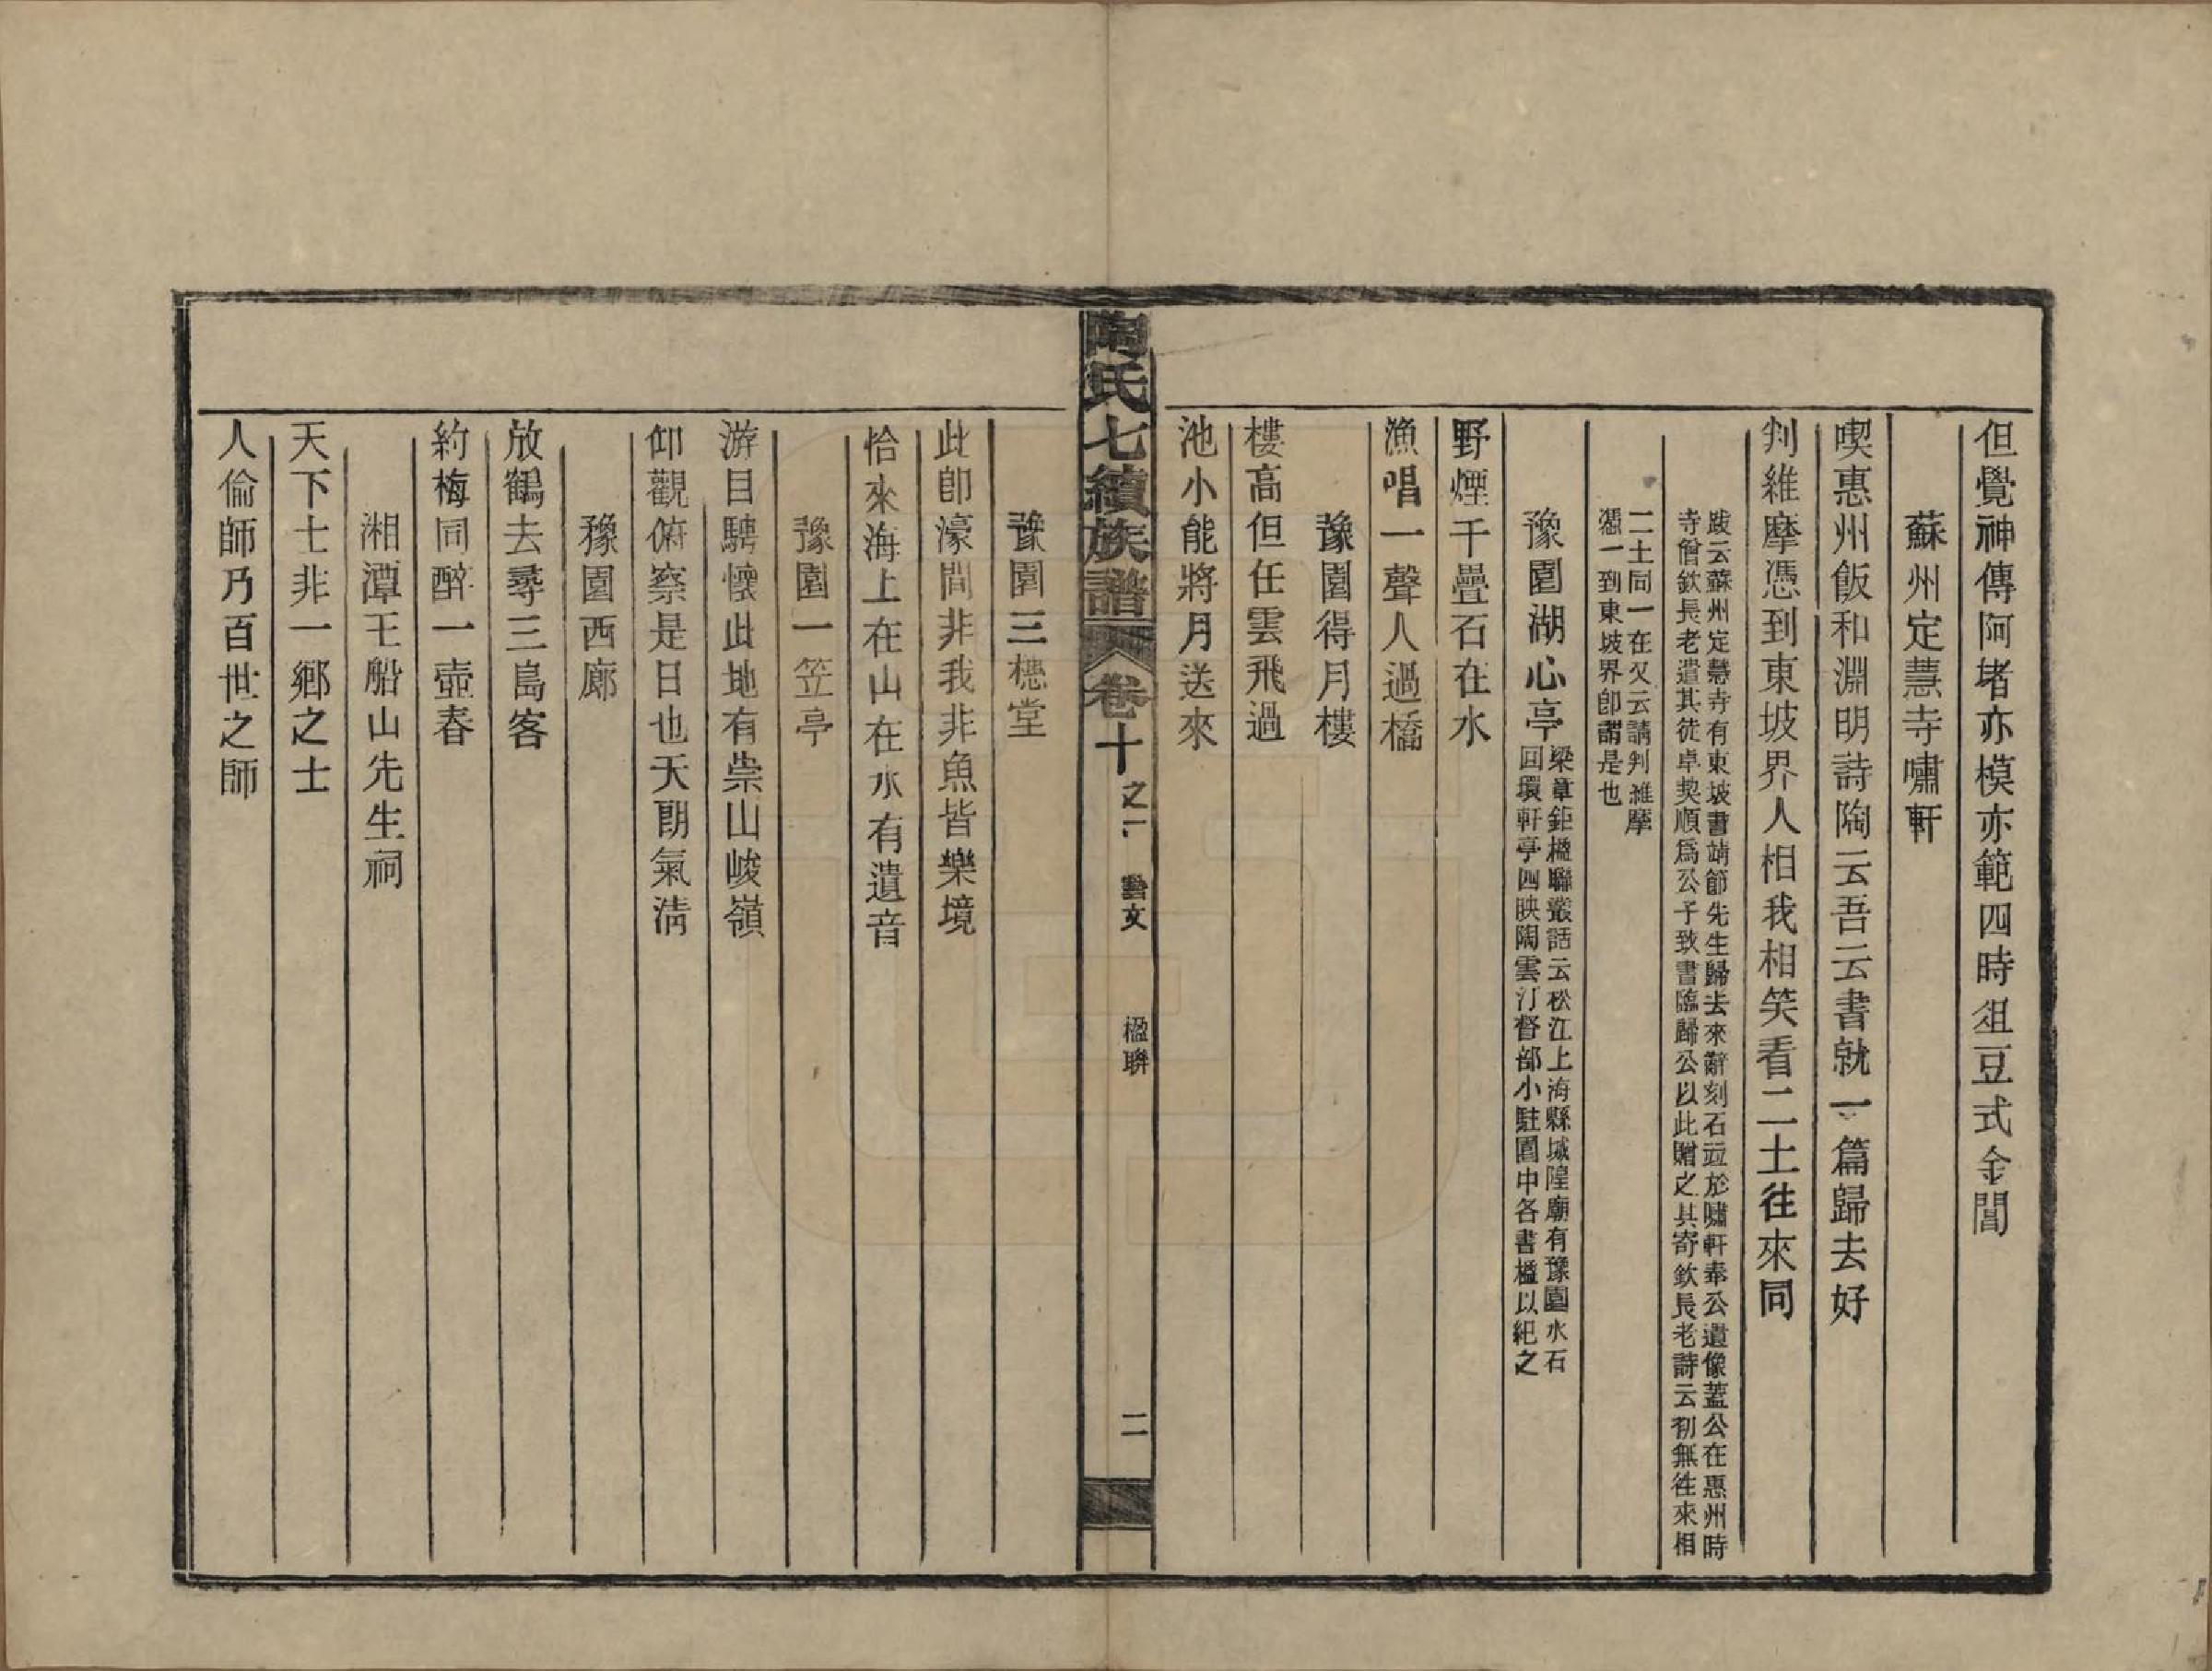 但覺神傳阿堵亦模亦範四時俎豆式金閶
蘇州定慧寺嘯軒
喫惠州飯和淵明詩陶云吾云書就一篇歸去好
判維摩憑到東坡界人相我相笑看二士往來同
跋云蘇州定慧寺有東坡書靖節先生歸去來辭刻石並於嘯軒奉公遺像蓋公在惠州時
寺僧欽長老遣其徒卓契順爲公子致書臨歸公以此贈之其寄欽長老詩云初無往來相
二士同一在又云請判維摩
憑一到東坡界卽謂是也
豫園湖心亭
梁章鉅楹聯叢話云松江上海縣城隍廟有豫園水石
回環軒亭四映陶雲汀督部小駐園中各書楹以紀之
野煙千疊石在水
漁唱一聲人過橋
豫園得月樓
樓高但任雲飛過
池小能將月送來
陶氏七續族譜 卷十 之一 藝文 楹聯 二
豫園三穗堂
此卽濠間非我非魚皆樂境
恰來海上在山在水有遺音
豫園一笠亭
游目騁懷此地有崇山峻嶺
仰觀俯察是日也天朗氣淸
豫園西廊
放鶴去尋三島客
約梅同醉一壺春
湘潭王船山先生祠
天下士非一鄉之士
人倫師乃百世之師